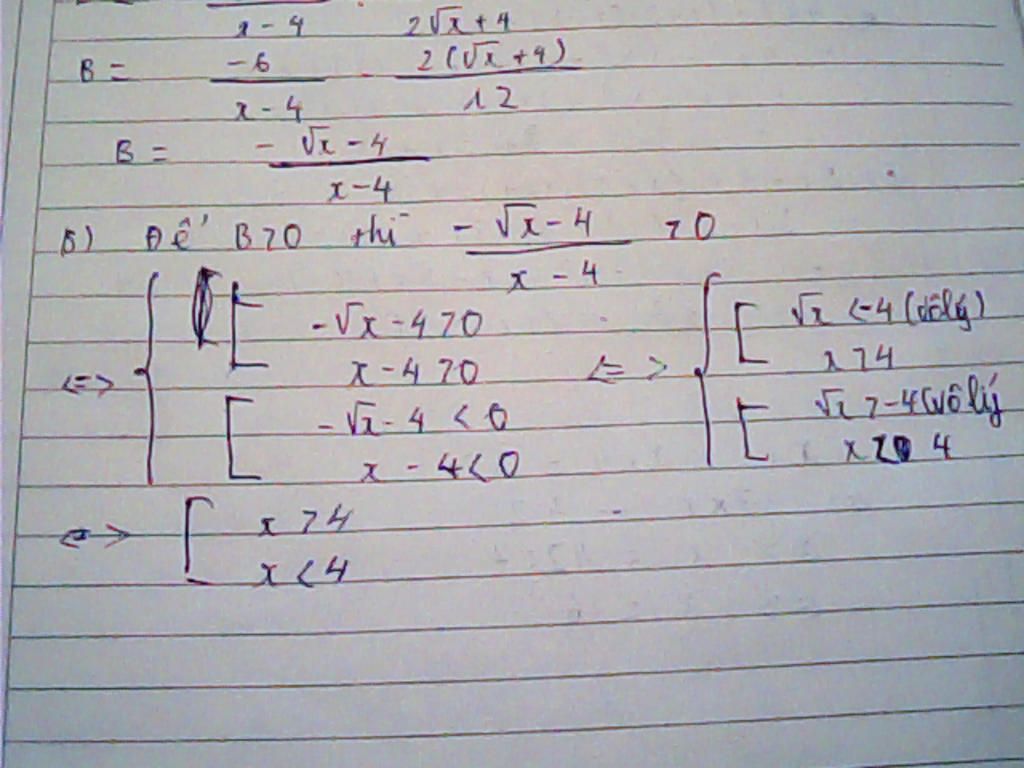 x - 4 2√x + 4
B = -6 / (x - 4) . 2(√x + 4) / 12
B = (-√x - 4) / (x - 4)
b) Để B > 0 thì (-√x - 4) / (x - 4) > 0
<=> { [ -√x - 4 > 0 <=> { [ √x < -4 (vô lý)
x - 4 > 0 x > 4
[ -√x - 4 < 0 [ √x > -4 (vô lý
x - 4 < 0 x < 4
<=> [ x > 4
x < 4